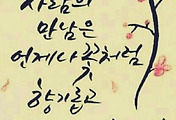 사람의
만남은
언제나 꽃처럼
향기롭고